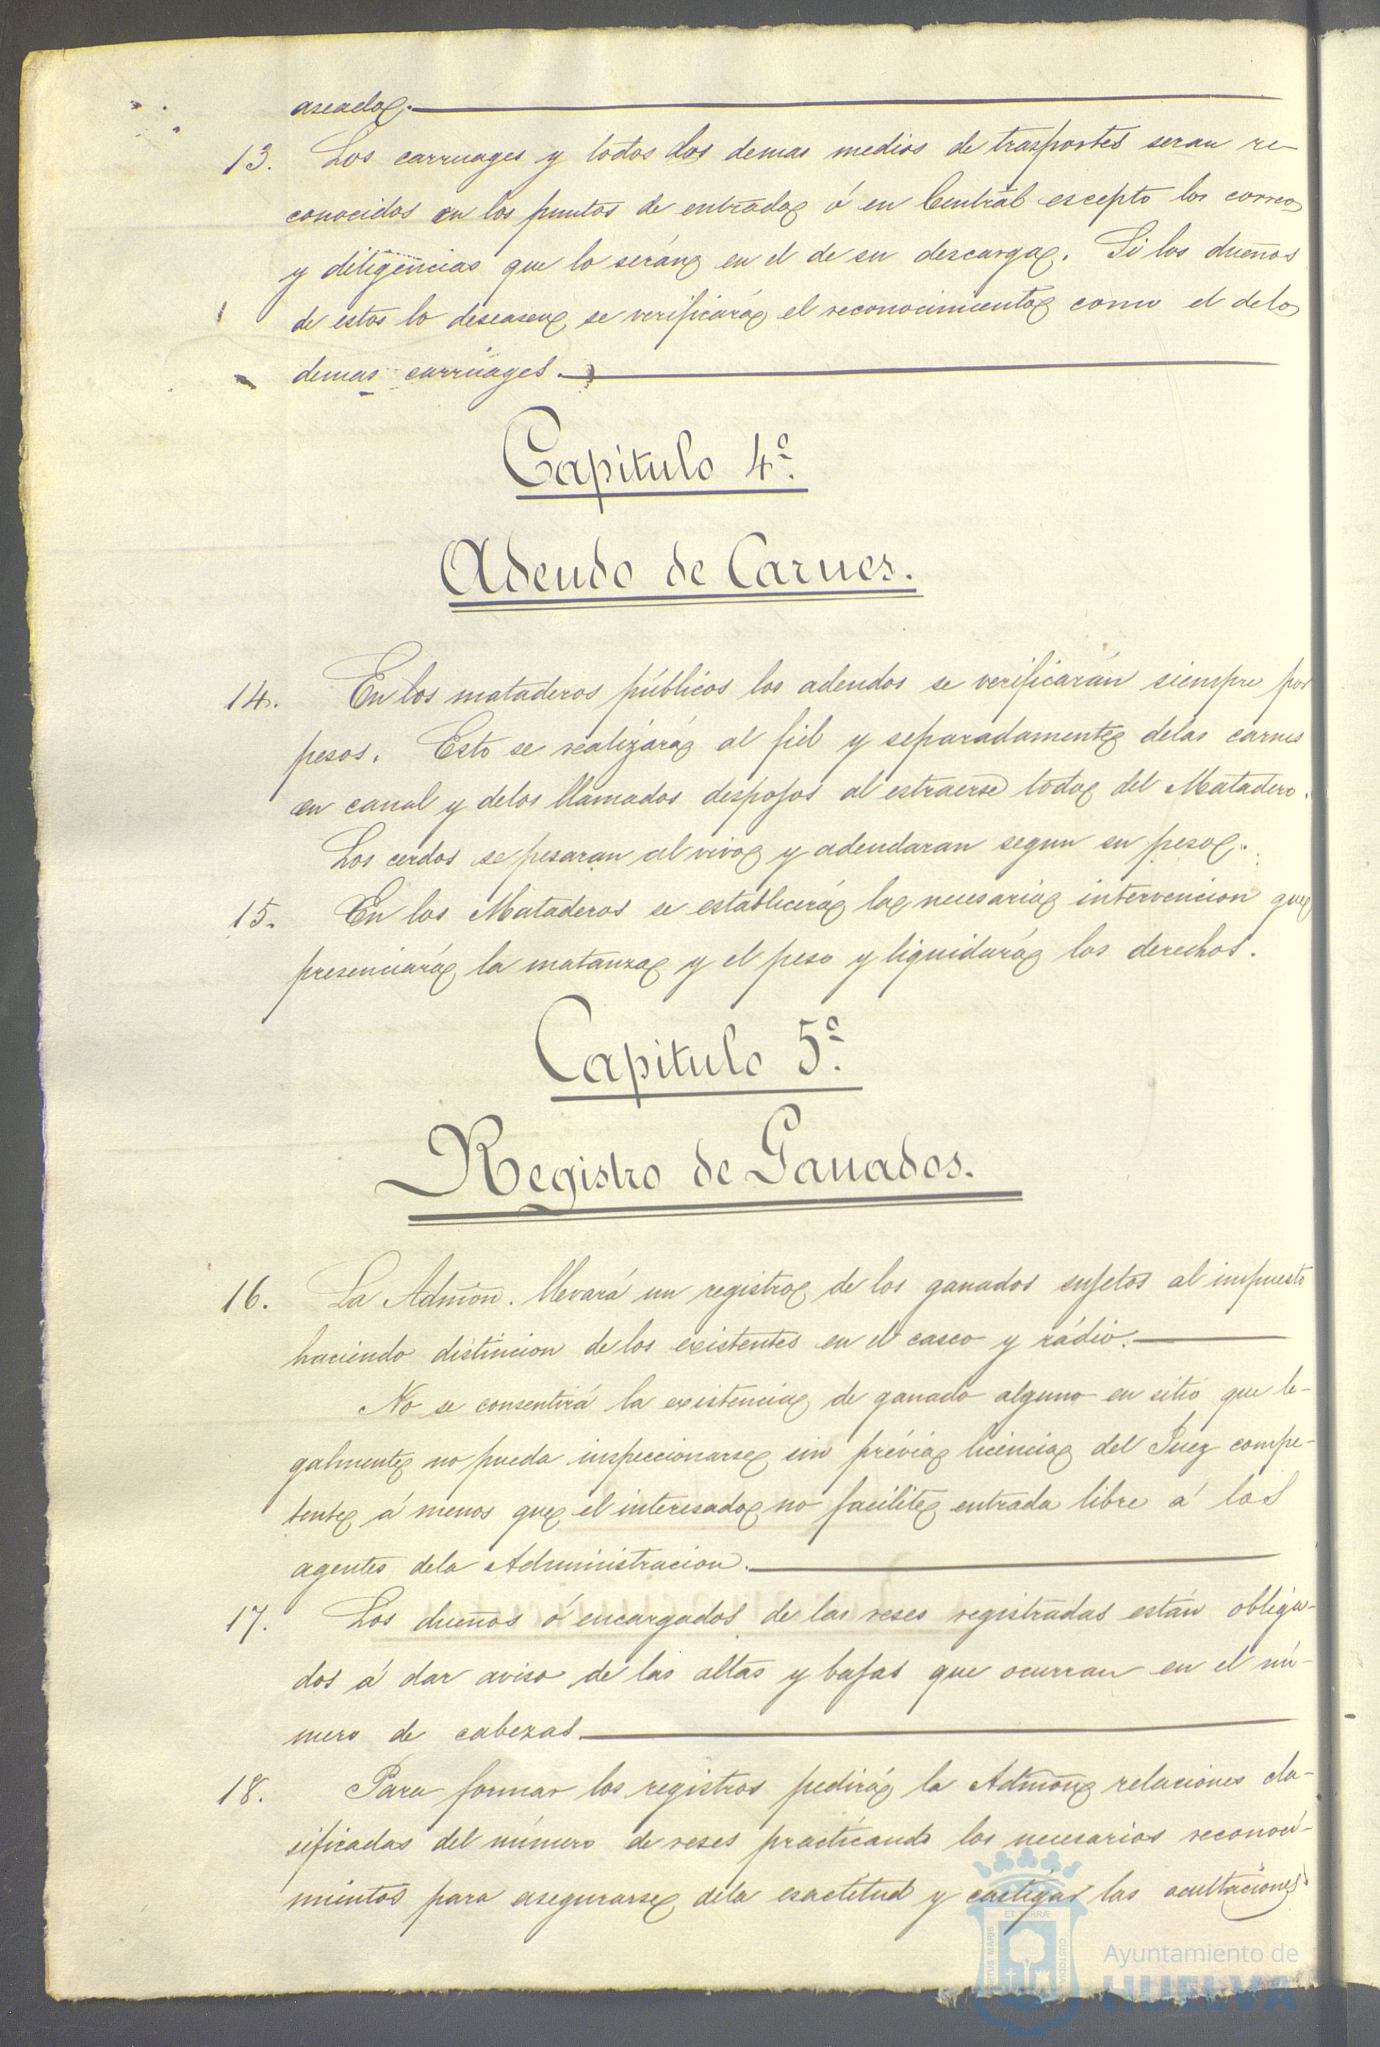 aseada.
13. Los carruages y todos los demas medios de trasportes seran re-
conocidos en los puntos de entrada ó en Central escepto los correos
y diligencias que lo serán en el de su descarga. Si los dueños
de estos lo deseasen se verificará el reconocimiento como el de los
demas carruages.
Capitulo 4º.
Adeudo de Carnes.
14. En los mataderos públicos los adeudos se verificarán siempre por
pesos. Esto se realizará al fiel y separadamente delas carnes
en canal y delos llamados despojos al estraerse todo del Matadero.
Los cerdos se pesaran al vivo y adeudaran segun su peso.
15. En los Mataderos se establecerá la necesaria intervencion que
presenciará la matanza y el peso y liquidará los derechos.
Capitulo 5º.
Registro de Ganados.
16. La Admon. llevará un registro de los ganados sujetos al impuesto
haciendo distincion de los existentes en el casco y rádio.
No se consentirá la existencia de ganado alguno en sitio que le-
galmente no pueda inspeccionarse sin prévia licencia del Juez compe-
tente á menos que el interesado no facilite entrada libre á los
agentes dela Administracion.
17. Los dueños ó encargados de las reses registradas están obliga-
dos á dar aviso de las altas y bajas que ocurran en el nú-
mero de cabezas.
18. Para formar los registros pedirá la Admon relaciones cla-
sificadas del número de reses practicando los necesarios reconoci-
mientos para asegurarse dela esactitud y castigar las ocultaciones
Ayuntamiento de
HUELVA